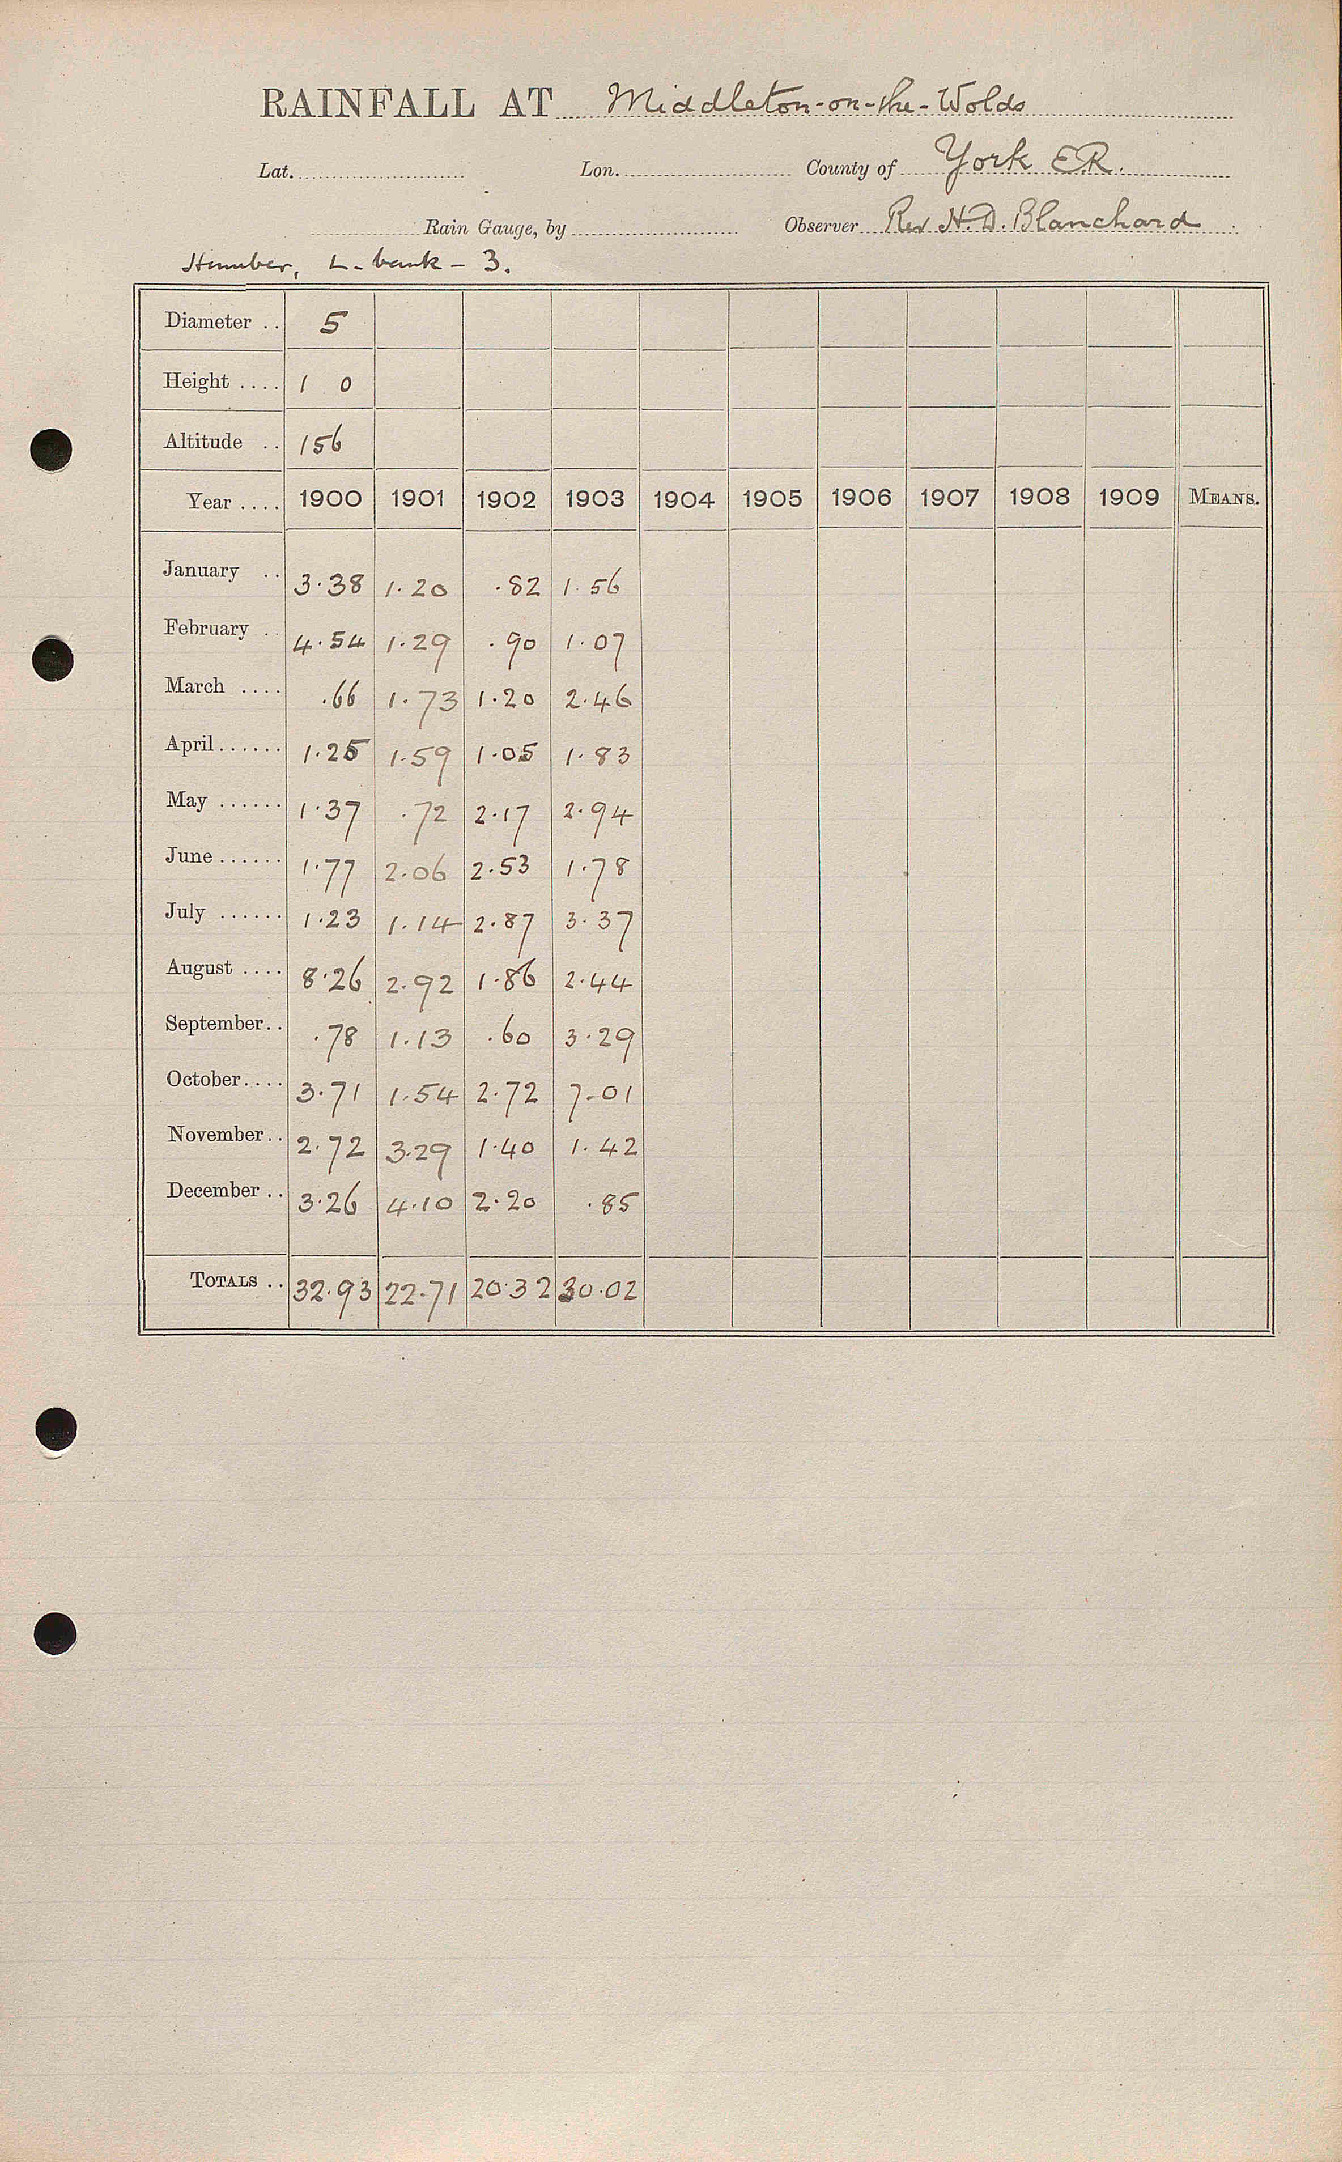 RAINFALL AT Middleton-on-the-Wolds
Lat. Lon. County of York E.R.
Rain Gauge, by Observer Rev H. D. Blanchard
Humber, L. bank - 3.
Diameter .. 5
Height .... 1 0
Altitude .. 156
Year .... 1900 1901 1902 1903 1904 1905 1906 1907 1908 1909 MEANS.
January .. 3.38 1.20 .82 1.56
February .. 4.54 1.29 .90 1.07
March .... .66 1.73 1.20 2.46
April ...... 1.25 1.59 1.05 1.83
May ...... 1.37 .72 2.17 2.94
June ...... 1.77 2.06 2.53 1.78
July ...... 1.23 1.14 2.87 3.37
August .... 8.26 2.92 1.86 2.44
September.. .78 1.13 .60 3.29
October.... 3.71 1.54 2.72 7.01
November.. 2.72 3.29 1.40 1.42
December .. 3.26 4.10 2.20 .85
TOTALS .. 32.93 22.71 20.32 30.02